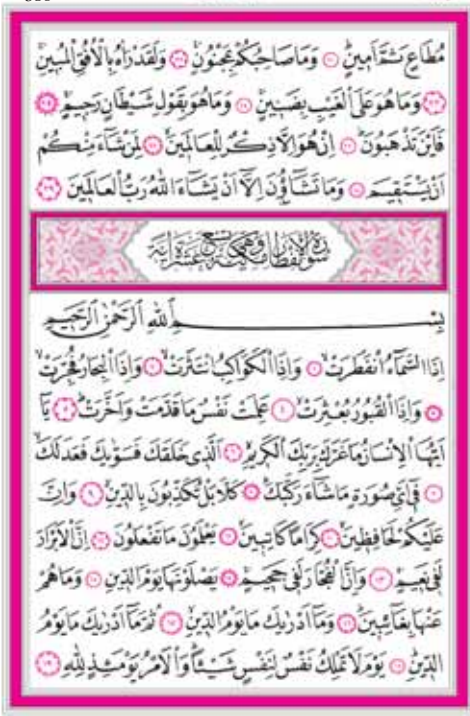 مُطَاعٍ ثَمَّ اَمٖينٍۜ ﴿٢١﴾ وَمَا صَاحِبُكُمْ بِمَجْنُونٍۚ ﴿٢٢﴾ وَلَقَدْ رَاٰهُ بِالْاُفُقِ الْمُبٖينِۚ
﴿٢٣﴾ وَمَا هُوَ عَلَى الْغَيْبِ بِضَنٖينٍۚ ﴿٢٤﴾ وَمَا هُوَ بِقَوْلِ شَيْطَانٍ رَجٖيمٍۙ ﴿٢٥﴾
فَاَيْنَ تَذْهَبُونَۜ ﴿٢٦﴾ اِنْ هُوَ اِلَّا ذِكْرٌ لِلْعَالَمٖينَۙ ﴿٢٧﴾ لِمَنْ شَٓاءَ مِنْكُمْ
اَنْ يَسْتَقٖيمَۜ ﴿٢٨﴾ وَمَا تَشَٓاؤُ۫نَ اِلَّٓا اَنْ يَشَٓاءَ اللّٰهُ رَبُّ الْعَالَمٖينَ ﴿٢٩﴾
سورة الانفطار مكية وهي تسع عشرة اية
بِسْمِ اللّٰهِ الرَّحْمٰنِ الرَّحٖيمِ
اِذَا السَّمَٓاءُ انْفَطَرَتْۙ ﴿١﴾ وَاِذَا الْكَوَاكِبُ انْتَثَرَتْۙ ﴿٢﴾ وَاِذَا الْبِحَارُ فُجِّرَتْۙ
﴿٣﴾ وَاِذَا الْقُبُورُ بُعْثِرَتْۙ ﴿٤﴾ عَلِمَتْ نَفْسٌ مَا قَدَّمَتْ وَاَخَّرَتْۜ ﴿٥﴾ يَٓا
اَيُّهَا الْاِنْسَانُ مَا غَرَّكَ بِرَبِّكَ الْكَرٖيمِۙ ﴿٦﴾ اَلَّذٖي خَلَقَكَ فَسَوّٰيكَ فَعَدَلَكَۙ
﴿٧﴾ فٖٓي اَيِّ صُورَةٍ مَا شَٓاءَ رَكَّبَكَۜ ﴿٨﴾ كَلَّا بَلْ تُكَذِّبُونَ بِالدّٖينِۙ ﴿٩﴾ وَاِنَّ
عَلَيْكُمْ لَحَافِظٖينَۙ ﴿١٠﴾ كِرَامًا كَاتِبٖينَۙ ﴿١١﴾ يَعْلَمُونَ مَا تَفْعَلُونَ ﴿١٢﴾ اِنَّ الْاَبْرَارَ
لَفٖي نَعٖيمٍۚ ﴿١٣﴾ وَاِنَّ الْفُجَّارَ لَفٖي جَحٖيمٍۚ ﴿١٤﴾ يَصْلَوْنَهَا يَوْمَ الدّٖينِ ﴿١٥﴾ وَمَا هُمْ
عَنْهَا بِغَٓائِبٖينَۜ ﴿١٦﴾ وَمَٓا اَدْرٰيكَ مَا يَوْمُ الدّٖينِۙ ﴿١٧﴾ ثُمَّ مَٓا اَدْرٰيكَ مَا يَوْمُ
الدّٖينِۜ ﴿١٨﴾ يَوْمَ لَا تَمْلِكُ نَفْسٌ لِنَفْسٍ شَيْـًٔاۜ وَالْاَمْرُ يَوْمَئِذٍ لِلّٰهِ ﴿١٩﴾